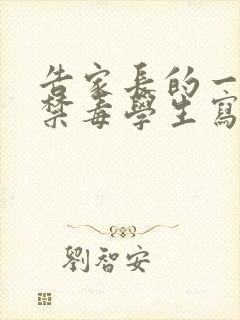 告家長的一
禁毒學生寫
劉智安